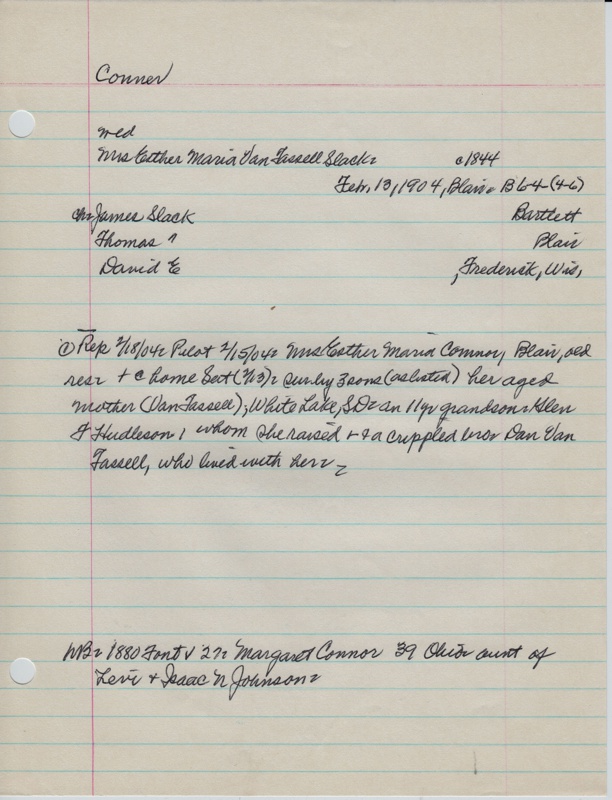 Conner
wed
Mrs Esther Maria Van Tassell Slack= c1844
Feb, 13, 1904, Blair= B64 (46)
ch= James Slack Bartlett
Thomas " Blair
David E , Frederick, Wis,
① Rep 2/18/04= Pilot 2/15/04= Mrs Esther Maria Connor, Blair, old
res= + @ home Sat (2/13)= surv by 3 sons (as listed) her aged
mother (Van Tassell), White Lake, S.D.= an 11 yr grandson= Glen
F Hudleson, whom she raised + a crippled bro= Dan Van
Tassell, who lived with her=
NB= 1880 Font v 27= Margaret Connor 39 Ohio= aunt of
Levi + Isaac N Johnson=